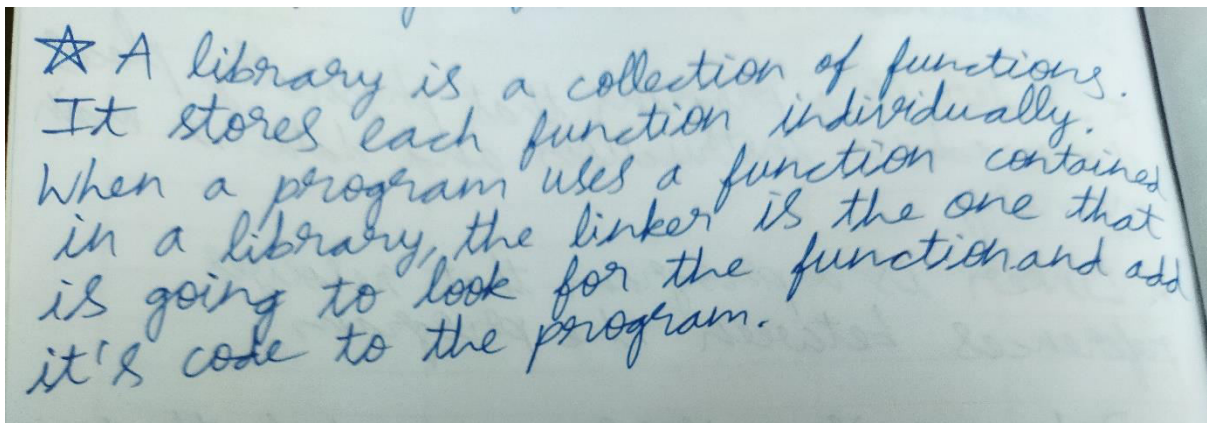 ☆ A library is a collection of functions.
It stores each function individually.
When a program uses a function contained
in a library, the linker is the one that
is going to look for the function and add
it's code to the program.